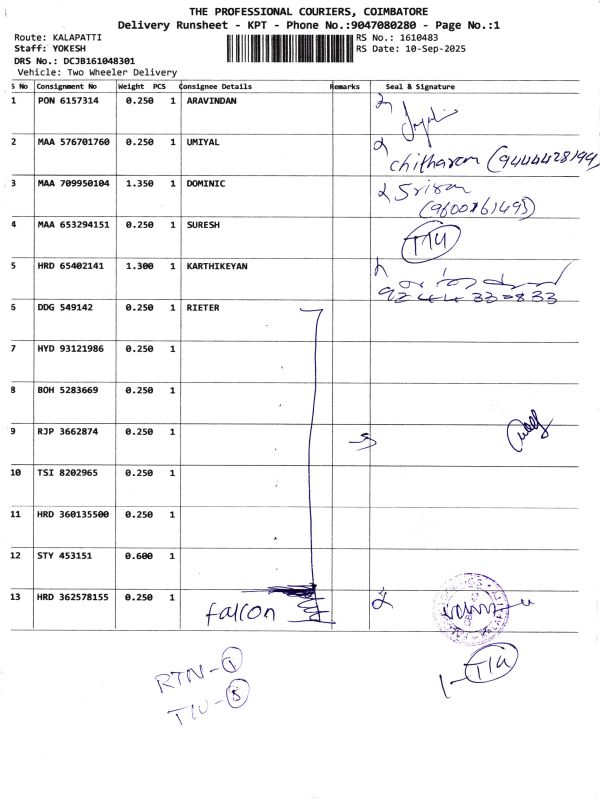 THE PROFESSIONAL COURIERS, COIMBATORE
Delivery Runsheet - KPT - Phone No.:9047080280 - Page No.:1
Route: KALAPATTI
Staff: YOKESH
DRS No.: DCJB161048301
Vehicle: Two Wheeler Delivery
RS No.: 1610483
RS Date: 10-Sep-2025
S No Consignment No Weight PCS Consignee Details Remarks Seal & Signature
1 PON 6157314 0.250 1 ARAVINDAN
2 MAA 576701760 0.250 1 UMIYAL
chitharam (9444428194)
3 MAA 709950104 1.350 1 DOMINIC
4 MAA 653294151 0.250 1 SURESH
5 HRD 65402141 1.300 1 KARTHIKEYAN
6 DDG 549142 0.250 1 RIETER
7 HYD 93121986 0.250 1
8 BOH 5283669 0.250 1
9 RJP 3662874 0.250 1
10 TSI 8202965 0.250 1
11 HRD 360135500 0.250 1
12 STY 453151 0.600 1
13 HRD 362578155 0.250 1
falcon
RTN-1